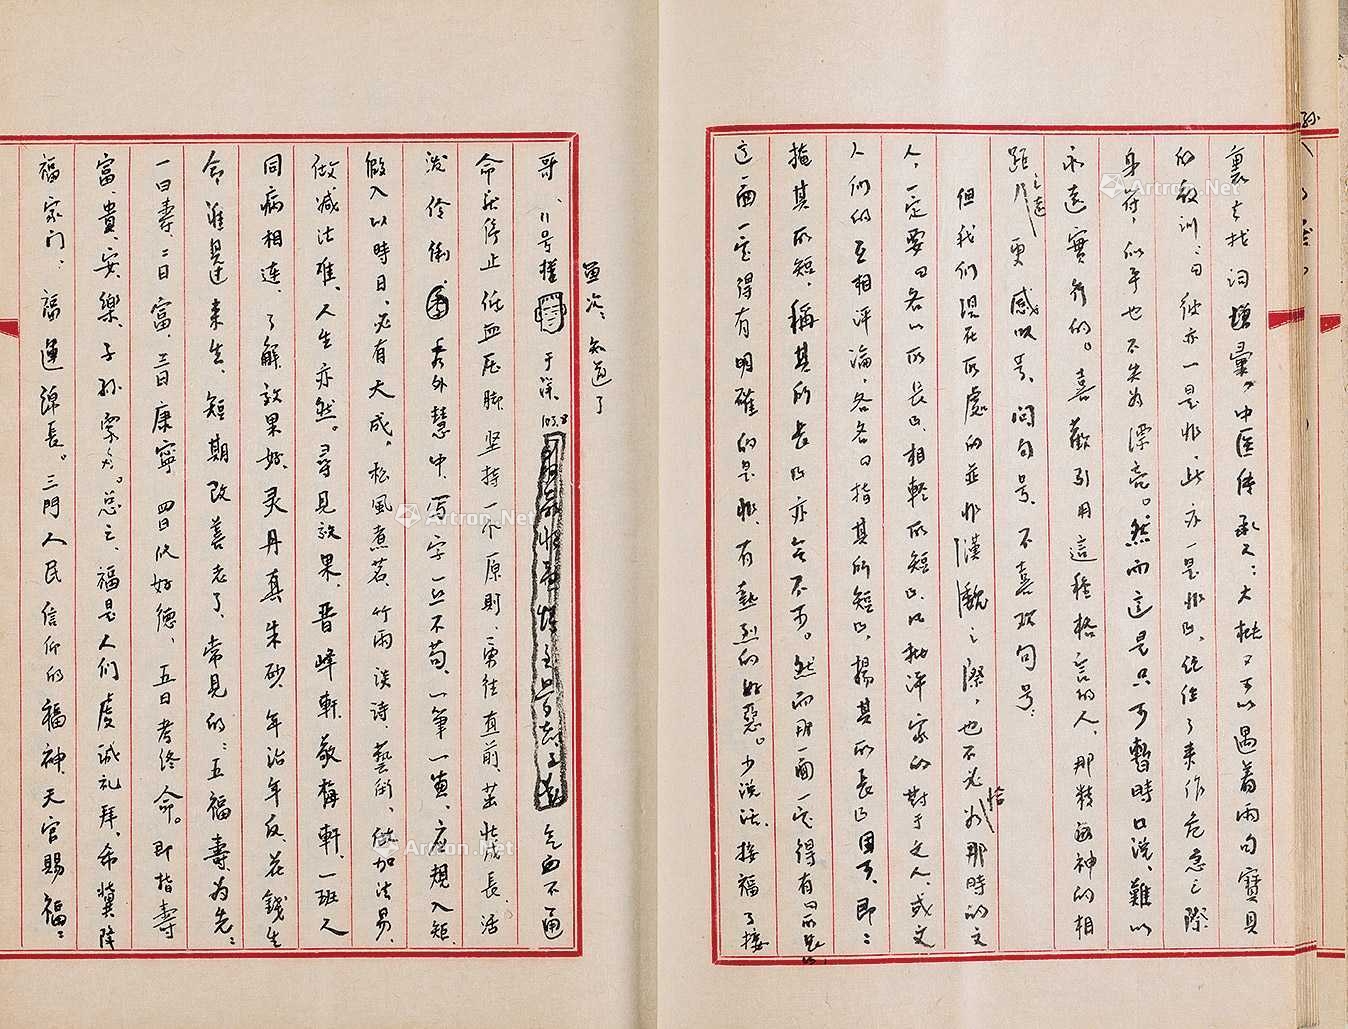 裏去找词增彙。中医传承人：大概又可以遇着两句寶貝
的教训：曰彼亦一是非，此亦一是非，
身符，似乎也不失为漂亮。然而這是只可暫時口说，難以
永遠實行的。喜歡引用這種格言的人，那精神的相
距之遠更感叹号、问句号、不喜欢句号：
但我们現在所處的並非漢魏之際，也不必恰为那時的文
人，一定要曰各以所長，相輕所短，以批評家的對于文人，或文
人们的互相评論，各各曰指其所短，揚其所長固可，即：
掩其所短，稱其所長亦無不可。然而那一面一定得有曰所長
這一面一定得有明確的是非，有熱烈的好惡。少说话，接福了接
重次、知道了
哥、11号楼 于深、103.8 气血不通
命在停止低血压脚坚持一个原则、勇往直前、茁壮成長、活
泼伶俐、秀外慧中、写字一丝不苟、一筆一画、应規入矩、
假入以時日、必有大成。松風煮茗、竹雨談诗、藝術、做加法易、
做减法难、人生亦然。尋見效果、晋峰軒、敬梅軒、一班人
同病相连、了解、效果好、灵丹真朱砂、年治年反、花錢生
命、谁見过来生、短期改善老了、常見的：五福壽为先：
一曰壽、二曰富、三曰康寧、四曰攸好德、五曰考终命。即指壽
富、貴、安、樂、子孙衆多。总之、福是人们虔诚礼拜、希冀降
福家门：福運綿長。三門人民信仰的福神、天官賜福：
Artron.Net
Artron.Net
Artron.Net
Artron.Net